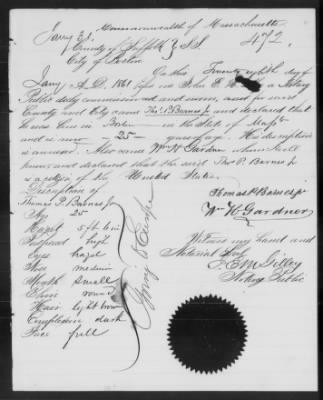 Jany 28
Commonwealth of Massachusetts
County of Suffolk } SS.
472.
City of Boston
On this Twenty eighth day of
Jany A.D. 1861 before me John E. M. Gilley a Notary
Public duly commissioned and sworn, and for said
County and City came Thos. P. Barnes Jr and declared that
he was born in Boston in the State of Mass
and is now 25 years of age. His description
is annexed. Also came Wm H. Gardner whom I well
know and declared that the said Thos. P. Barnes Jr
is a citizen of the United States.
Description of
Thomas P. Barnes Jr
Thomas P Barnes Jr
Age 25
Wm H Gardner
Height 5 ft 6 in
Forehead high
Witness my hand and
Eyes hazel
Notarial Seal
Nose medium
J. E. M. Gilley
Mouth small
Notary Public
Chin round
Hair light brown
Complexion dark
Face full